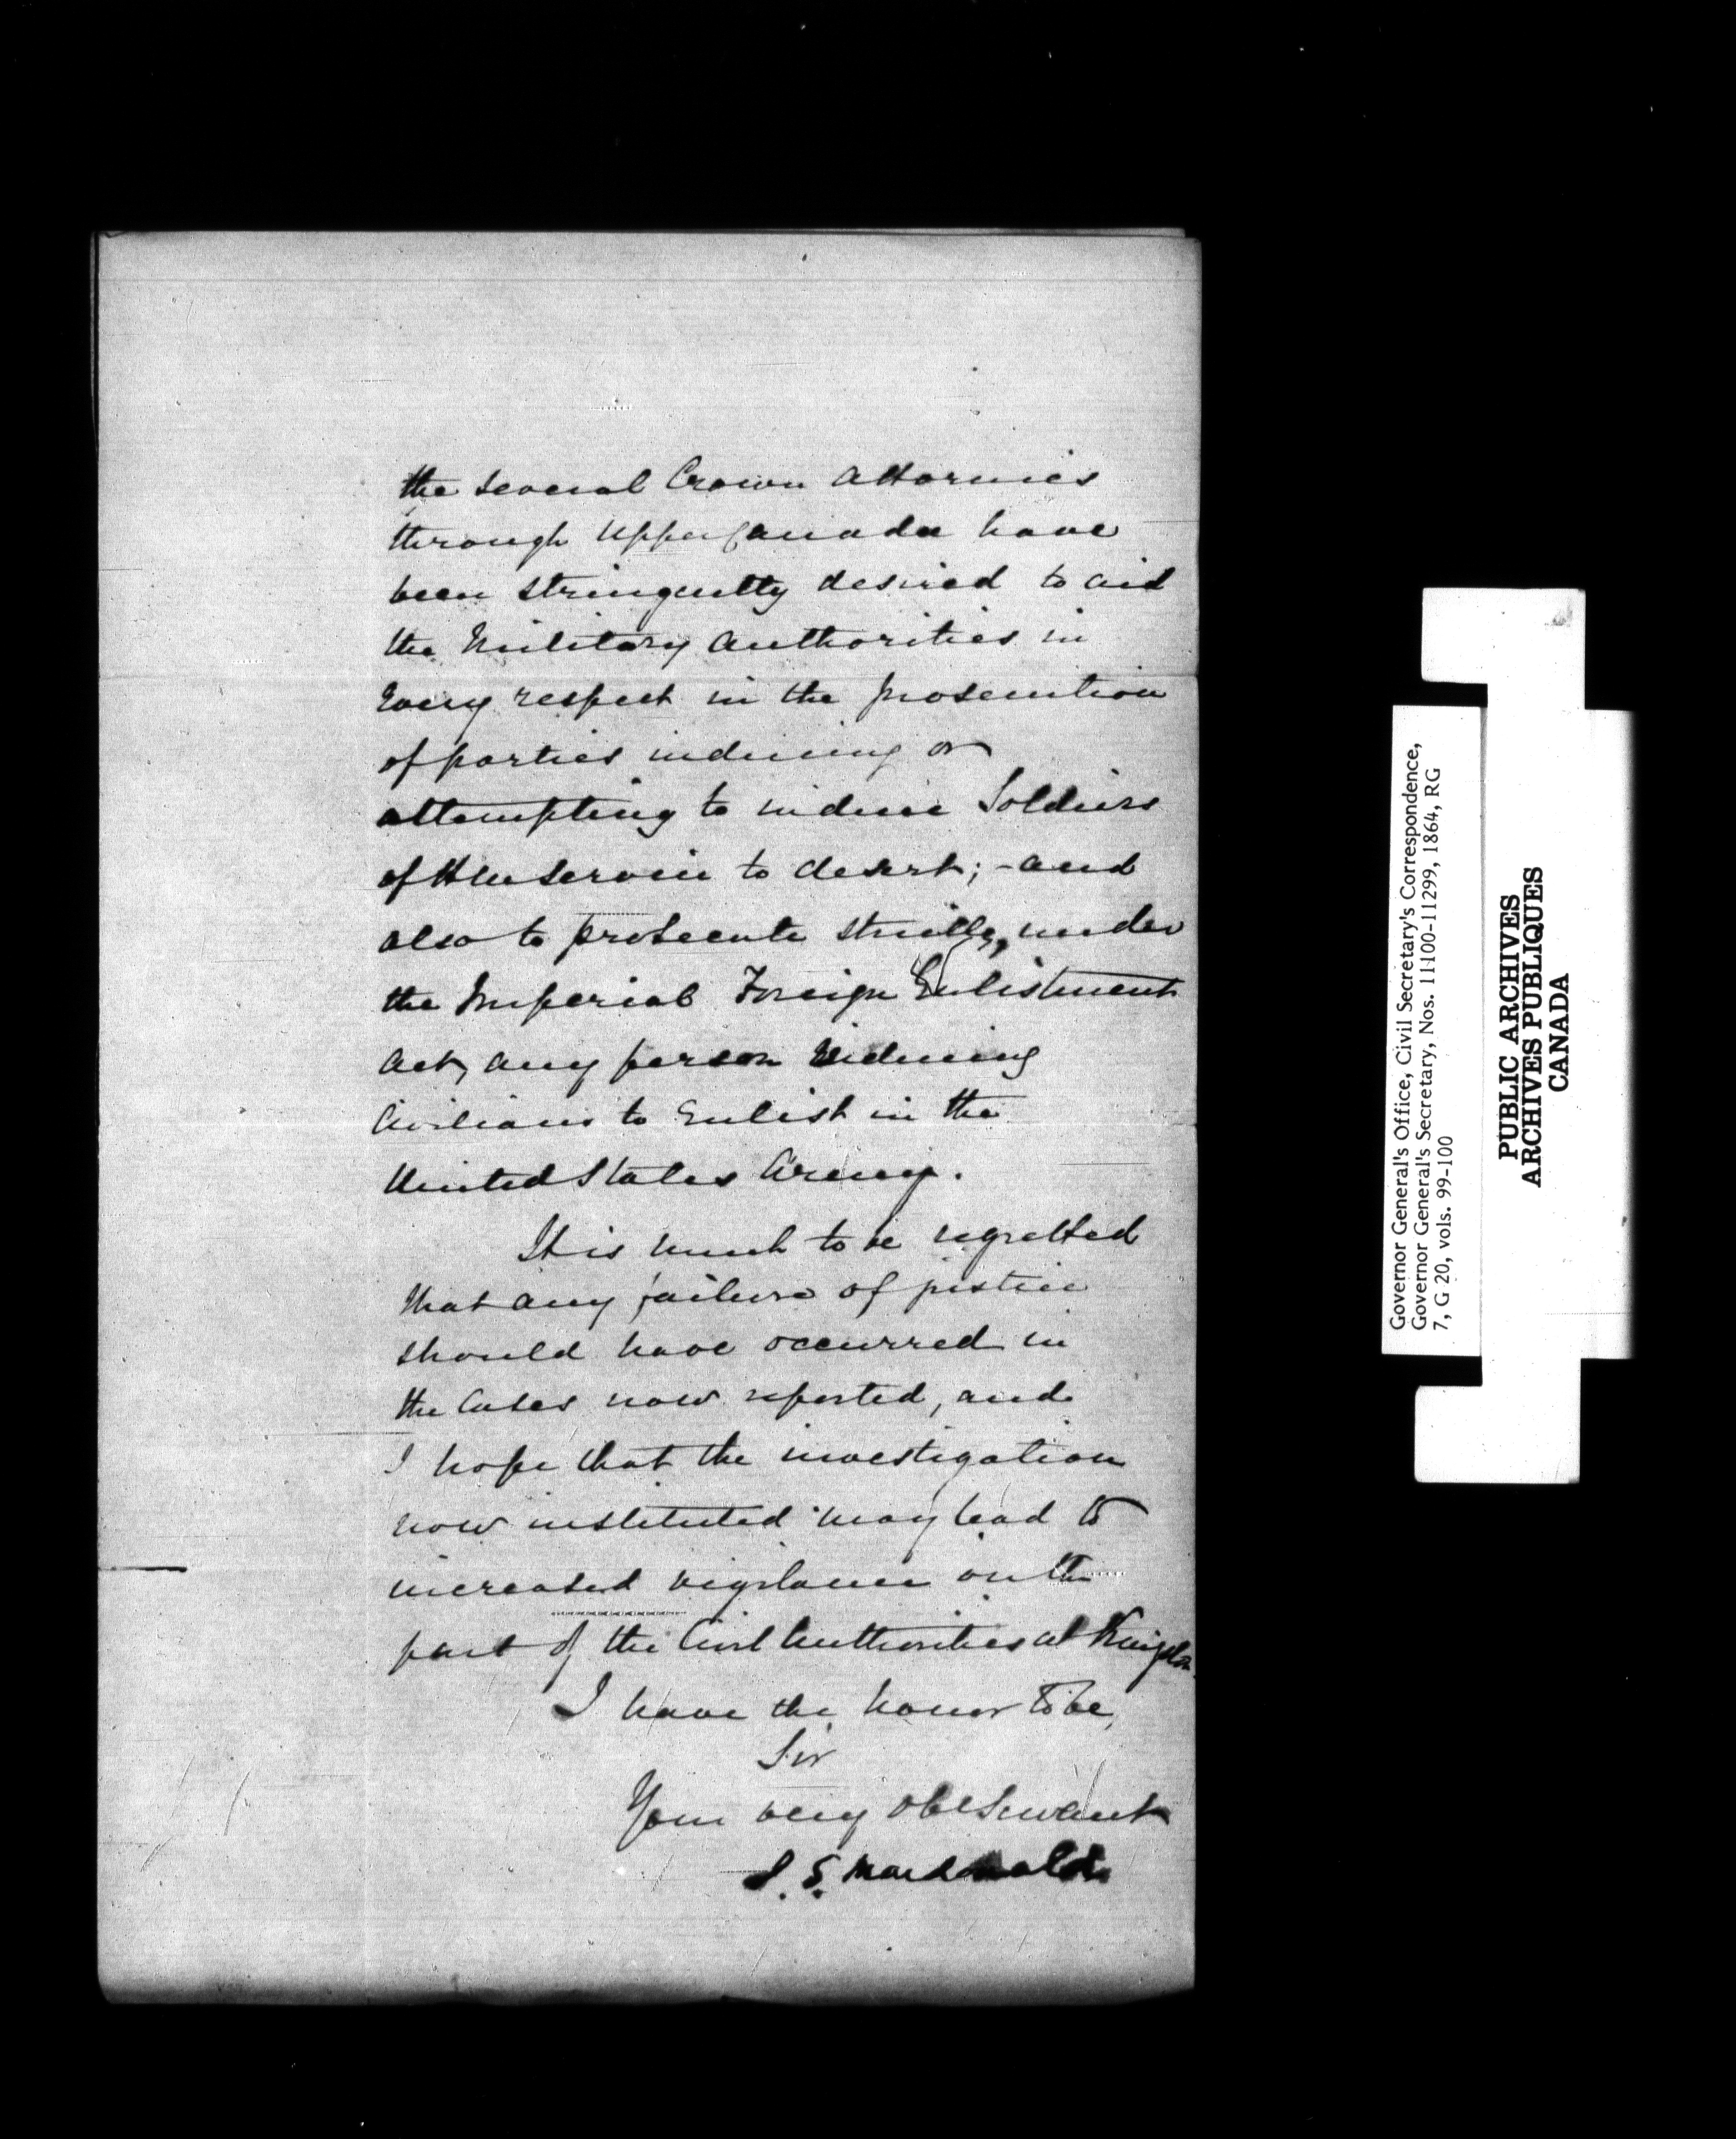 the several Crown Attornies
through Upper Canada have
been stringently desired to aid
the Military Authorities in
every respect in the prosecution
of parties inducing or
attempting to induce Soldiers
of Service to desert; - and
also to prosecute strictly, under
the Imperial Foreign Enlistment
Act, any person inducing
Civilians to Enlist in the
United States Army.
It is much to be regretted
that any failure of justice
should have occurred in
the Cases now reported, and
I hope that the investigation
now instituted may lead to
increased vigilance on the
part of the Civil Authorities at Kingston.
I have the honor to be,
Sir
Your very obt Servant
J. S. Macdonald
Governor General's Office, Civil Secretary's Correspondence,
Governor General's Secretary, Nos. 11100-11299, 1864, RG
7, G 20, vols. 99-100
PUBLIC ARCHIVES
ARCHIVES PUBLIQUES
CANADA